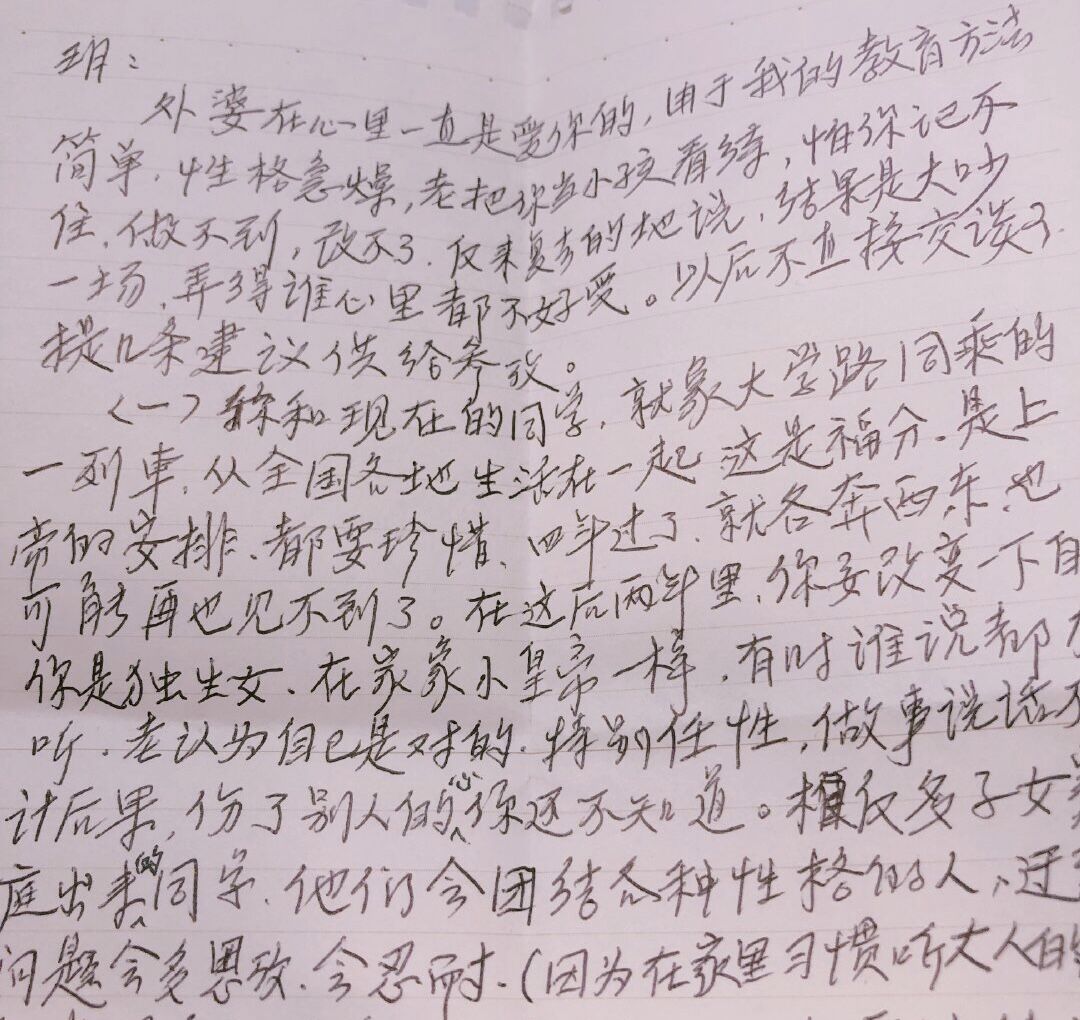 玥：
外婆在心里一直是爱你的，由于我的教育方法
简单．性格急燥，老把你当小孩看待，怕你记不
住．做不到，改不了．反来复去的地说，结果是大吵
一场，弄得谁心里都不好受。以后不直接交谈了．
提几条建议供给参攷。
（一）你和现在的同学，就象大学路同乘的
一列車，从全国各地生活在一起 这是福分．是上
帝的安排．都要珍惜．四年过了．就各奔西东．也
可能再也见不到了。在这后两年里．你要改变一下自
你是独生女．在家象小皇帝一样，有时谁说都
听．老认为自己是对的．特别任性，做事说话不
计后果，伤了别人的心你还不知道。相反多子女
庭出来的同学．他们会团结各种性格的人，
问题会多思攷．会忍耐．（因为在家里习惯听大人的